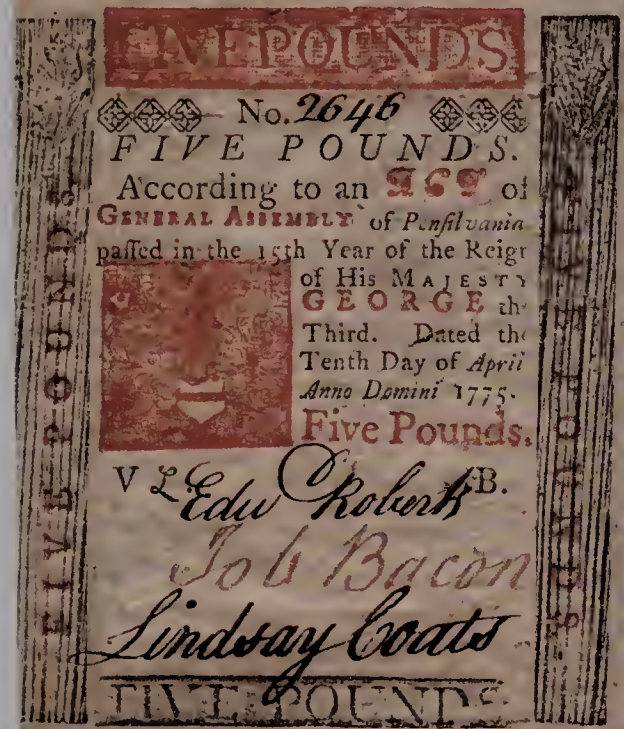 FIVE POUNDS
No. 2646
FIVE POUNDS.
According to an ACT of
GENERAL ASSEMBLY of Pensilvania
passed in the 15th Year of the Reign
of His MAJESTY
GEORGE the
Third. Dated the
Tenth Day of April
Anno Domini 1775.
Five Pounds.
V L B.
Edw Roberts
Job Bacon
Lindsay Coats
FIVE POUNDS
FIVE POUNDS
FIVE POUNDS